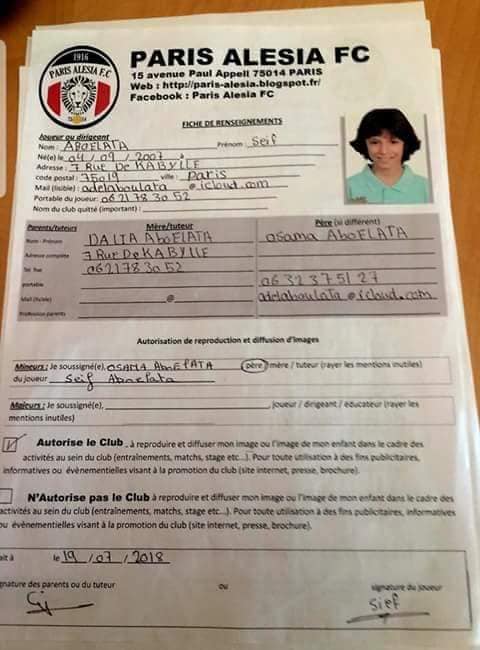 1916
PARIS ALESIA F.C
PARIS ALESIA FC
15 avenue Paul Appell 75014 PARIS
Web : http://paris-alesia.blogspot.fr/
Facebook : Paris Alesia FC
FICHE DE RENSEIGNEMENTS
Joueur ou dirigeant
Nom : ABOELATA Prénom : Seif
Né(e) le 04 / 09 / 2007 à
Adresse : 7 Rue De KABYLIE
code postal : 75019 ville : Paris
Mail (lisible) : adelaboulata @ icloud.com
Portable du joueur : 0621783052
Nom du club quitté (important) :
Parents/tuteurs Mère/tuteur Père (si différent)
Nom - Prénom DALIA AboELATA osama AboELATA
Adresse complète 7 Rur De KABYLIE
Tel fixe 0621783052
portable 0632375127
Mail (lisible) @ adelaboulata @ icloud.com
Profession parents
Autorisation de reproduction et diffusion d'images
Mineurs : Je soussigné(e), OSAMA AboElATA père / mère / tuteur (rayer les mentions inutiles)
du joueur Seif Aboelata
Majeurs : Je soussigné(e), , joueur / dirigeant / éducateur (rayer les
mentions inutiles)
Autorise le Club , à reproduire et diffuser mon image ou l'image de mon enfant dans le cadre des
activités au sein du club (entraînements, matchs, stage etc...). Pour toute utilisation à des fins publicitaires,
informatives ou évènementielles visant à la promotion du club (site internet, presse, brochure).
N'Autorise pas le Club à reproduire et diffuser mon image ou l'image de mon enfant dans le cadre des
activités au sein du club (entraînements, matchs, stage etc...). Pour toute utilisation à des fins publicitaires, informatives
ou évènementielles visant à la promotion du club (site internet, presse, brochure).
ait à le 19 / 07 / 2018
gnature des parents ou du tuteur ou signature du joueur
sief